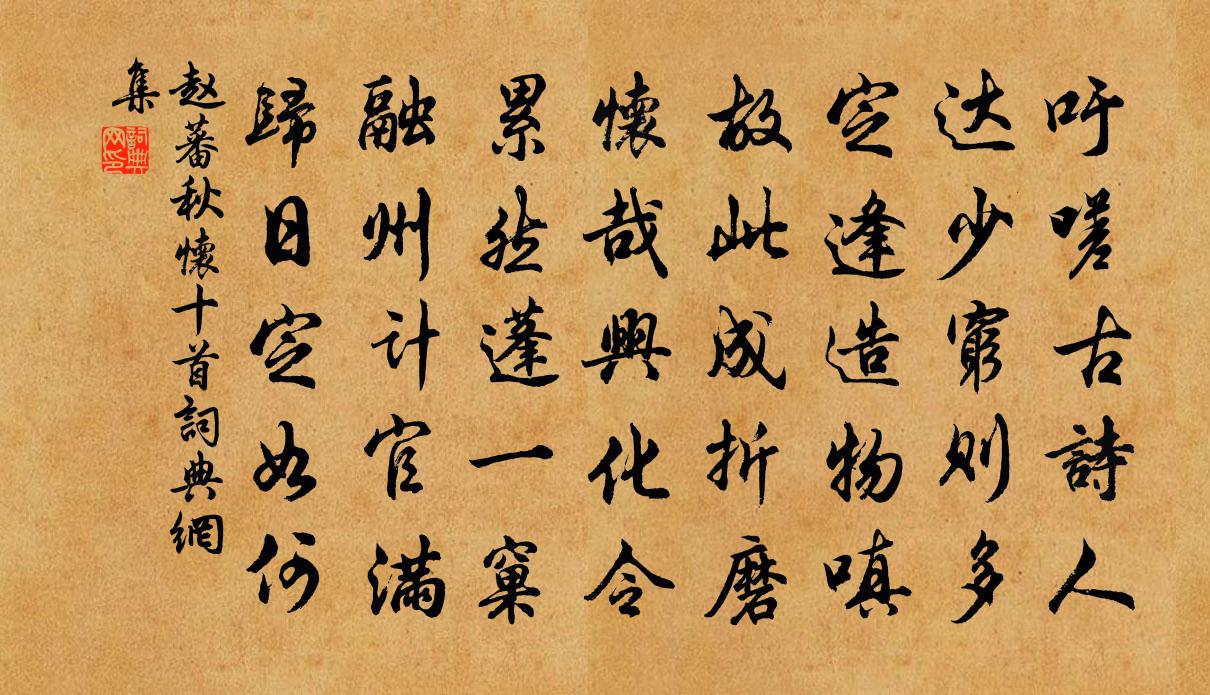 吁嗟古詩人
达少窮則多
定逢造物嗔
故此成折磨
懷哉興化令
累然蓬一窠
融州计官满
歸日定如何
赵蕃秋懷十首詞典網
集
詞典网印